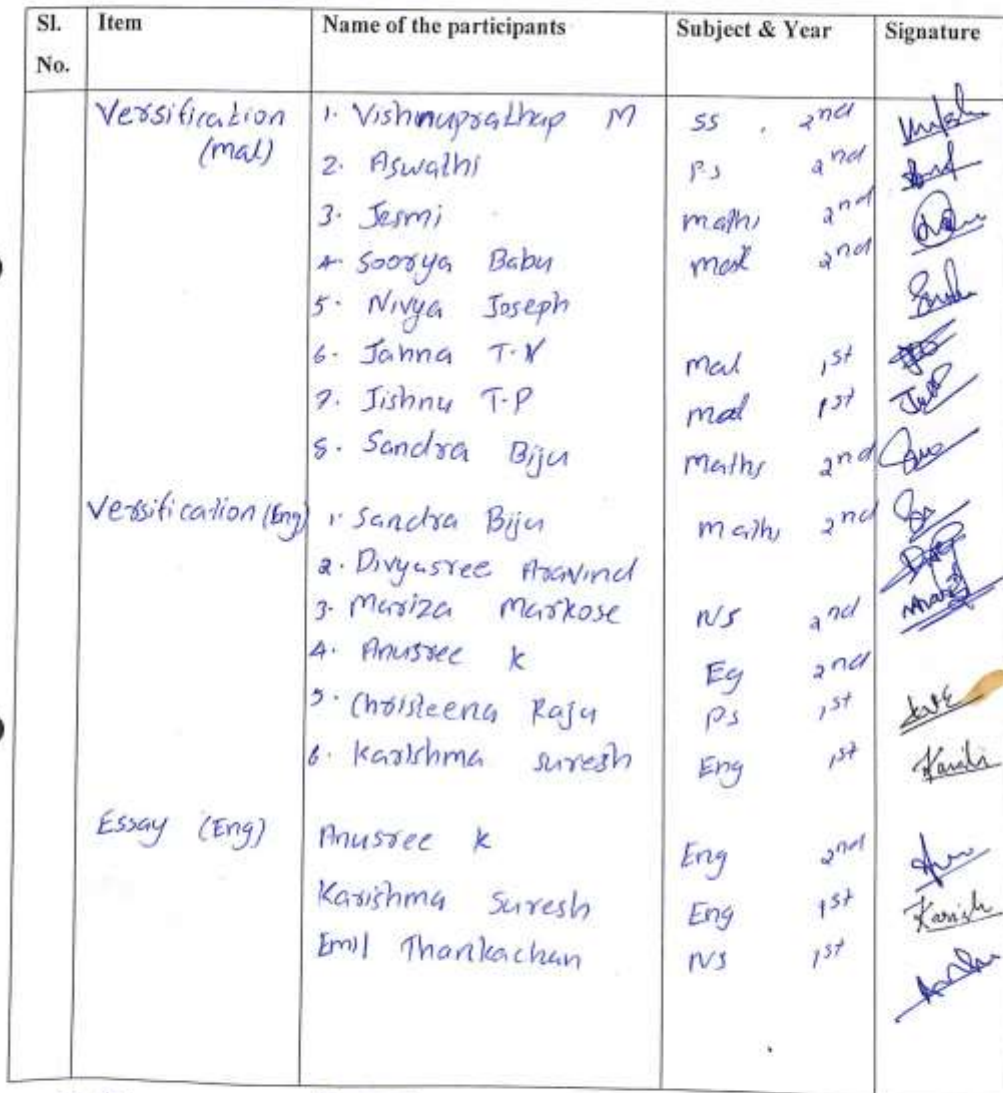 Sl. No. Item Name of the participants Subject & Year Signature
Versification (mal) 1. Vishnuprathap M SS , 2nd
2. Aswathi PS 2nd
3. Jesmi maths 2nd
4. Soorya Babu mal 2nd
5. Nivya Joseph
6. Janna T.V mal 1st
7. Jishnu T.P mal 1st
8. Sandra Biju Maths 2nd
Versification (Eng) 1. Sandra Biju maths 2nd
2. Divyasree Aravind
3. Mariza Markose NS 2nd
4. Anusree K Eg 2nd
5. Christeena Raju PS 1st
6. Karishma Suresh Eng 1st
Essay (Eng) Anusree K Eng 2nd
Karishma Suresh Eng 1st Karish
Emil Thankachan NS 1st